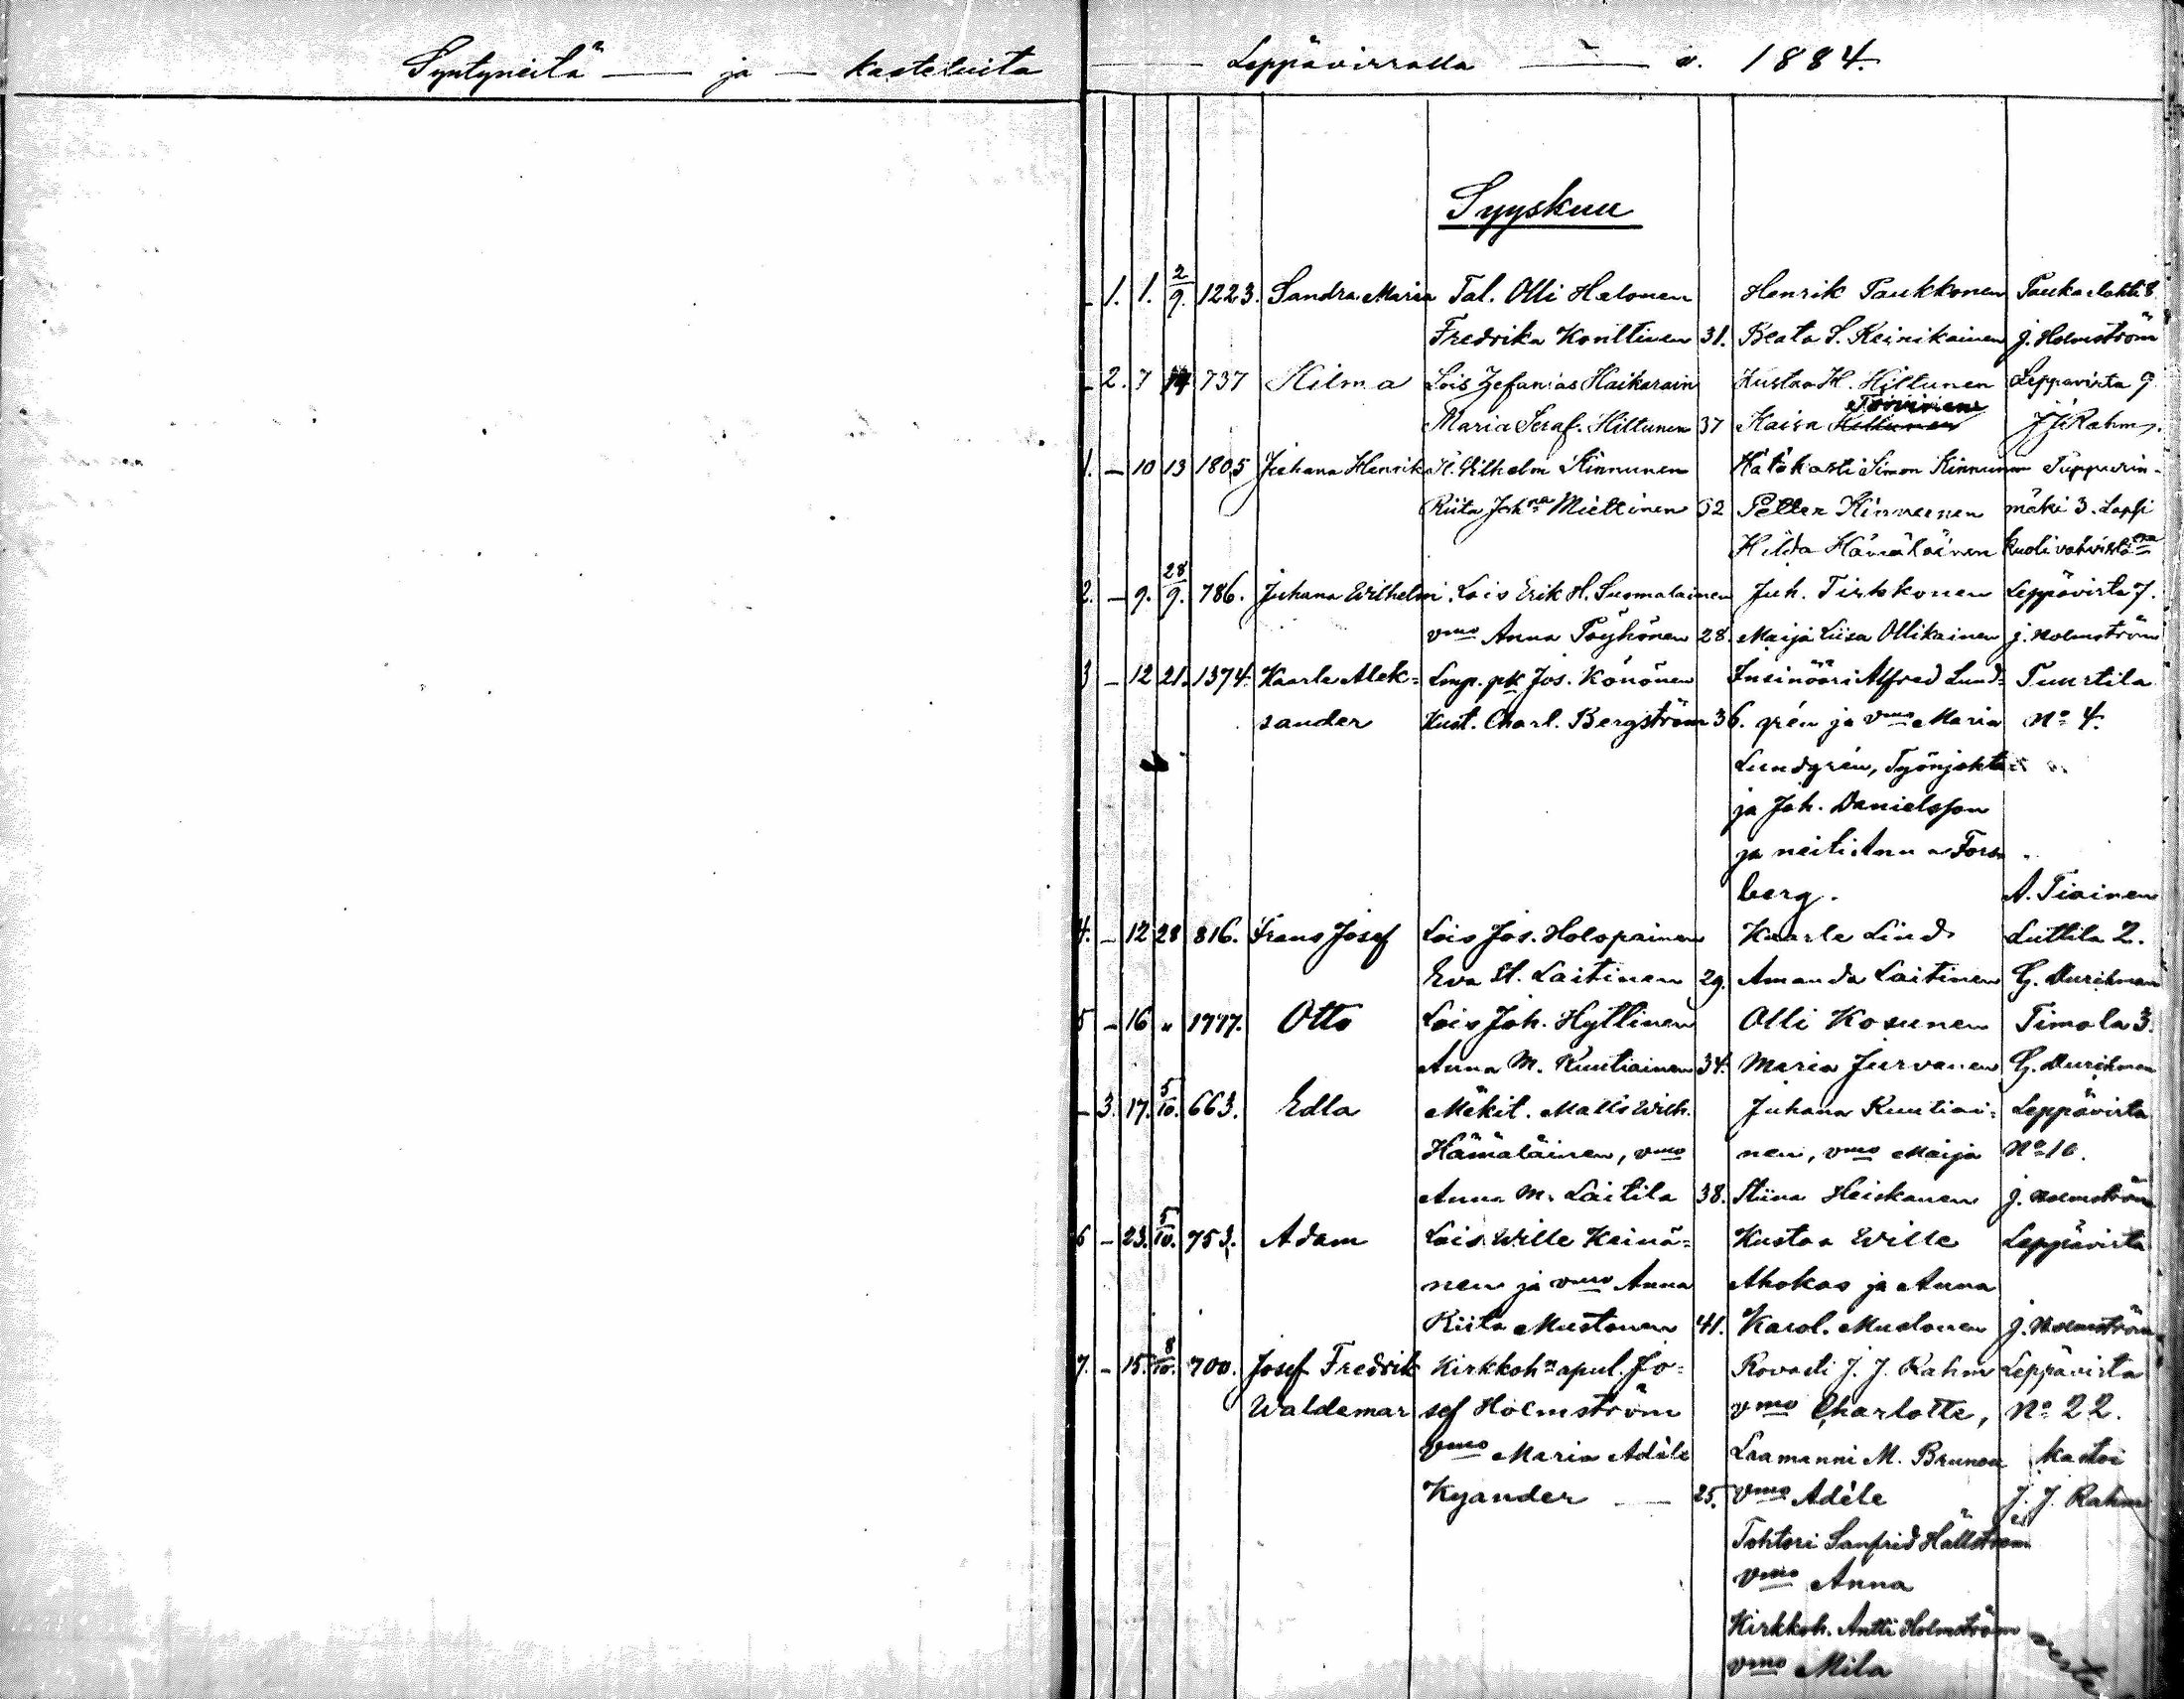 Syntyneitä — ja — kasteluita — Leppävirralla — v. 1884.
Syyskuu
– 1. 1. 2/9. 1223. Sandra Maria Tal. Olli Halonen Henrik Paukkonen Paukarlahti 8
Fredrika Konttinen 31. Beata S. Reinikainen J. Holmström
– 2. 7 14 737 Hilma Lois Zefanias Haikarain Kustaa H. Hiltunen Leppävirta 9
Toivinen
Maria Seraf. Hiltunen 37 Kaisa Hiltunen J. J. Rahm.
1. – 10 13 1805 Juhana Henrik H. Wilhelm Kinnunen Hätäkasti Simon Kinnunen Tuppurin-
Riita Joh:na Miettinen 32 Petter Kinnunen mäki 3. Lapsi
Hilda Hämäläinen kuoli vahvista:na
2. – 9. 28/9. 786. Juhana Wilhelmi Lois Erik H. Suomalainen Juh. Tirkkonen Leppävirta 7.
vmo Anna Pöyhönen 28. Maija Liisa Ollikainen J. Holmström
3 – 12 21. 1374. Kaarle Alek= Lmp. pk Jos. Könönen Insinööri Alfred Lund= Tuurtila
sander Kust. Charl. Bergström 36. grén ja vmo Maria No 4.
Lundgrén, Työnjohta
ja Joh. Danielsson
ja neiti Anna Fors
berg. A. Tiainen
4. – 12 28 816. Frans Josef Lois Jos. Holopainen Kaarle Lind Luttila 2.
Eva St. Laitinen 29. Amanda Laitinen G. Durchman
5 – 16 „ 1777. Otto Lois Joh. Hyttinen Olli Kosunen Timola 3.
Anna M. Kuutiainen 34. Maria Jurvanen G. Durchman
– 3. 17. 5/10. 663. Edla Mäkit. Matts Wilh. Juhana Kuutiai= Leppävirta
Hämäläinen, vmo nen, vmo Maija No 10.
Anna M. Laitila 38. Stiina Heiskanen J. Holmström
6 – 23. 5/10. 753. Adam Lois Wille Keinä= Kustaa Wille Leppävirta
nen ja vmo Anna Ahokas ja Anna
Riita Mustonen 41. Karol. Mustonen J. Holmström
7. – 15. 8/10. 700. Josef Fredrik Kirkkoh:n apul. Jo= Rovasti J. J. Rahm Leppävirta
Waldemar sef Holmström vmo Charlotte, No 22.
vmo Maria Adèle Laamanni M. Brunou kastoi
Kyander — 25. vmo Adèle J. J. Rahm
Tohtori Sanfrid Hällström
vmo Anna
Kirkkoh. Antti Holmström
vmo Mila